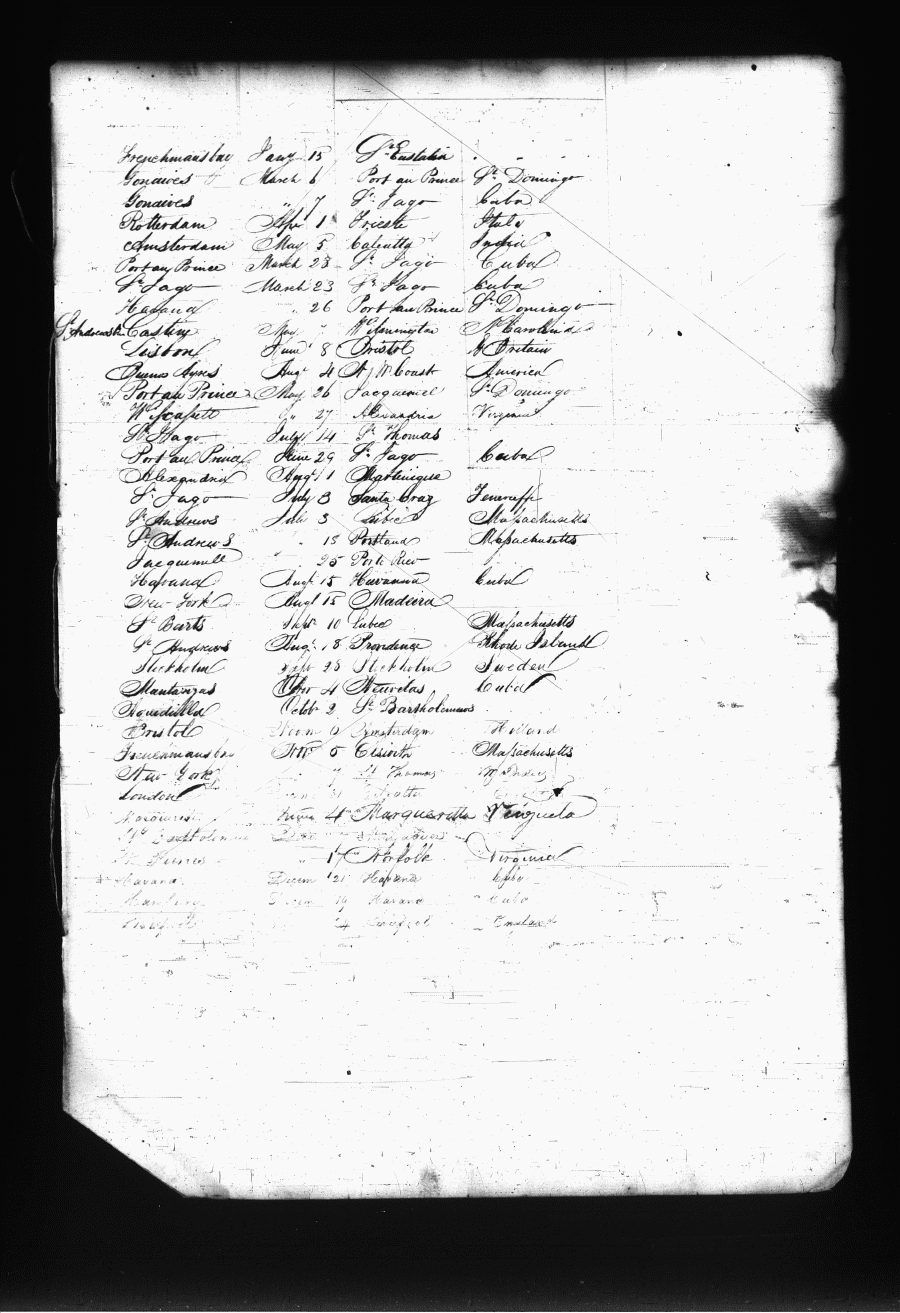 Frenchmansbay Jany 15 St Eustatia " "
Gonaives March 6 Port au Prince St Domingo
Gonaives " 7 St Jago Cuba
Rotterdam Apr 1 Trieste Italy
Amsterdam May 5 Calcutta India
Port au Prince March 23 St Jago Cuba
St Jago March 23 St Jago Cuba
Havana " 26 Port au Prince St Domingo
St Andrews Castine May " Wilmington N Carolina
Lisbon June 8 Bristol Britain
Buenos Ayres Augt 4 N W Coast America
Port au Prince May 26 Jacquemel St Domingo
Wiscasett " 27 Alexandria Virginia
St Iago July 14 St Thomas
Port au Prince June 29 St Jago Cuba
Alexandria Augt 1 Martinique
St Jago July 3 Santa Craz Teneriffe
St Andrews July 3 Lubec Massachusetts
St Andrews " 15 Portland Massachusetts
Jacquemell 25 Porto Rico
Havana Augt 15 Havanna Cuba
New York Augt 15 Madeira
St Barts Sept 10 Lubec Massachusetts
St Andrews Augt 18 Providence Rhode Island
Stockholm Sept 28 Stockholm Sweden
Mantanzas Obr 4 Neuvitas Cuba
Aquadilla Octobr 2 St Bartholomews
Bristol 6 Amsterdam Holland
Frenchmansbay Novr 5 Massachusetts
New York 7 St Thomas
London
4 Margueretta Venezuela
17 Norfolk Virginia
Havana Decem 21 Havana Cuba
Decem 19 Havana " Cuba
24 England